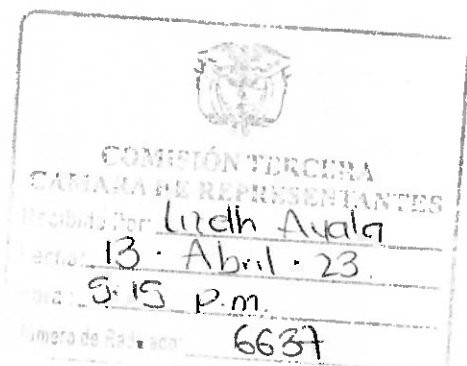 COMISIÓN TERCERA
CÁMARA DE REPRESENTANTES
Recibido Por: Lizeth Ayala
Fecha: 13 · Abril · 23.
Hora: 5:15 p.m.
Número de Radicado: 6637